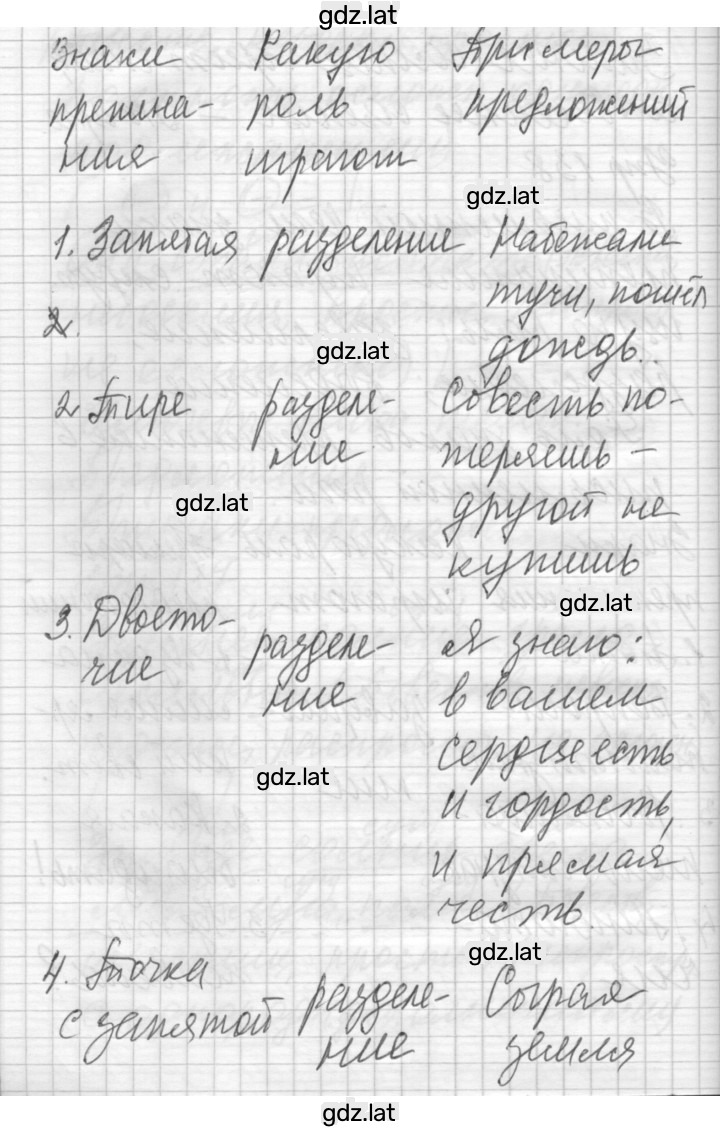 gdz.lat
Знаки Какую Примеры
препина- роль предложений
ния играют
gdz.lat
1. Запятая разделение Набежали
тучи, пошёл
2.
gdz.lat
дождь.
2 Тире разделе- Совесть по-
ние теряешь –
gdz.lat
другой не
купишь
gdz.lat
3. Двоето- разделе- Я знаю:
чие ние в вашем
сердце есть
gdz.lat
и гордость,
и прямая
честь.
gdz.lat
4. Точка разделе- Сырая
с запятой ние земля
gdz.lat